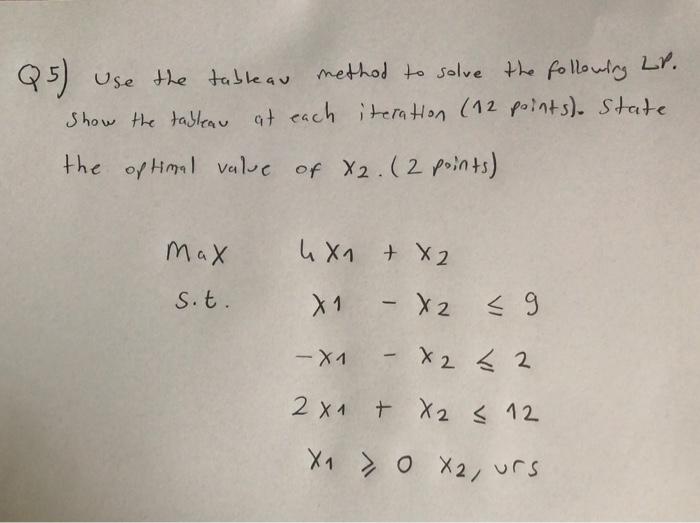 Q5) Use the tableau method to solve the following LP.
Show the tableau at each iteration (12 points). State
the optimal value of X2. (2 points)
Max 4X1 + X2
s.t. X1 - X2 ≤ 9
-X1 - X2 ≤ 2
2X1 + X2 ≤ 12
X1 ≥ 0 X2, urs